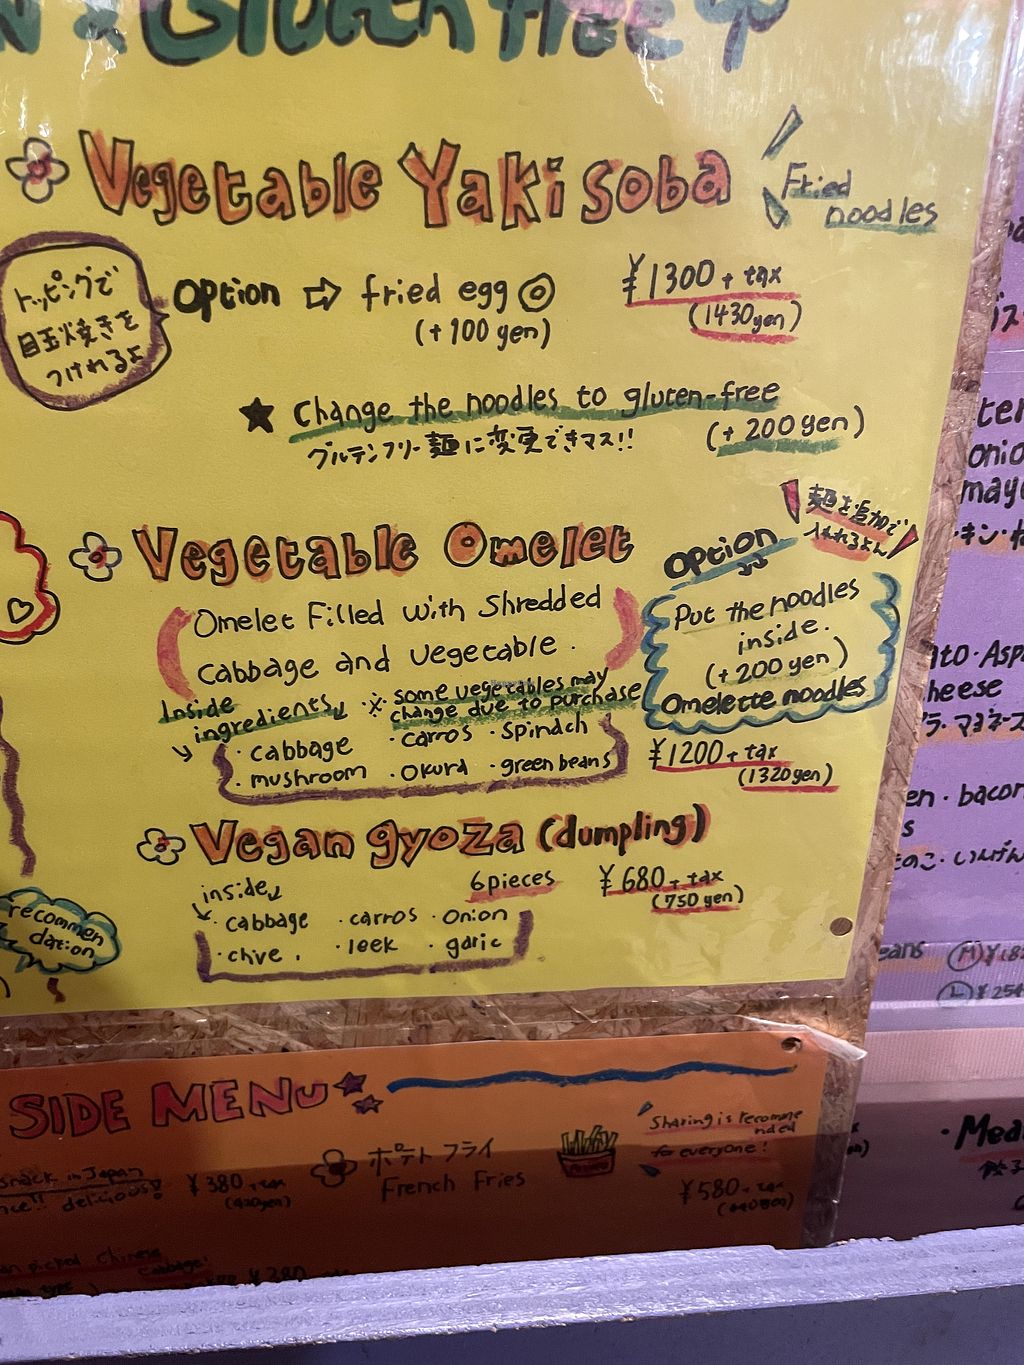 & Gluten free
Vegetable Yaki soba
Fried
noodles
トッピングで
目玉焼きを
つけれるよ
option ⇨ fried egg
(+100 yen)
¥1300 + tax
(1430yen)
★ Change the noodles to gluten-free
グルテンフリー麺に変更できマス!!
(+200yen)
Vegetable Omelet
Omelet Filled with Shredded
cabbage and vegetable.
option
麺を追加で
入れれるよん
Put the noodles
inside.
(+200 yen)
Omelette noodles
Inside
ingredients
※ some vegetables may
change due to purchase
・cabbage ・carros ・spinach
・mushroom ・okura ・green beans
¥1200 + tax
(1320yen)
Vegan gyoza (dumpling)
inside
6pieces
¥680 + tax
(750 yen)
・cabbage ・carros ・onion
・chive. ・leek ・garic
recommen
dation
SIDE MENU
snack in Japan
delicious!
¥380 + tax
ポテトフライ
French Fries
Sharing is recomme
nded
for everyone!
¥580 + tax
picked Chinese
cabbage
¥280
onio
heese
bacon
eans
Ⓜ
Ⓛ ¥254